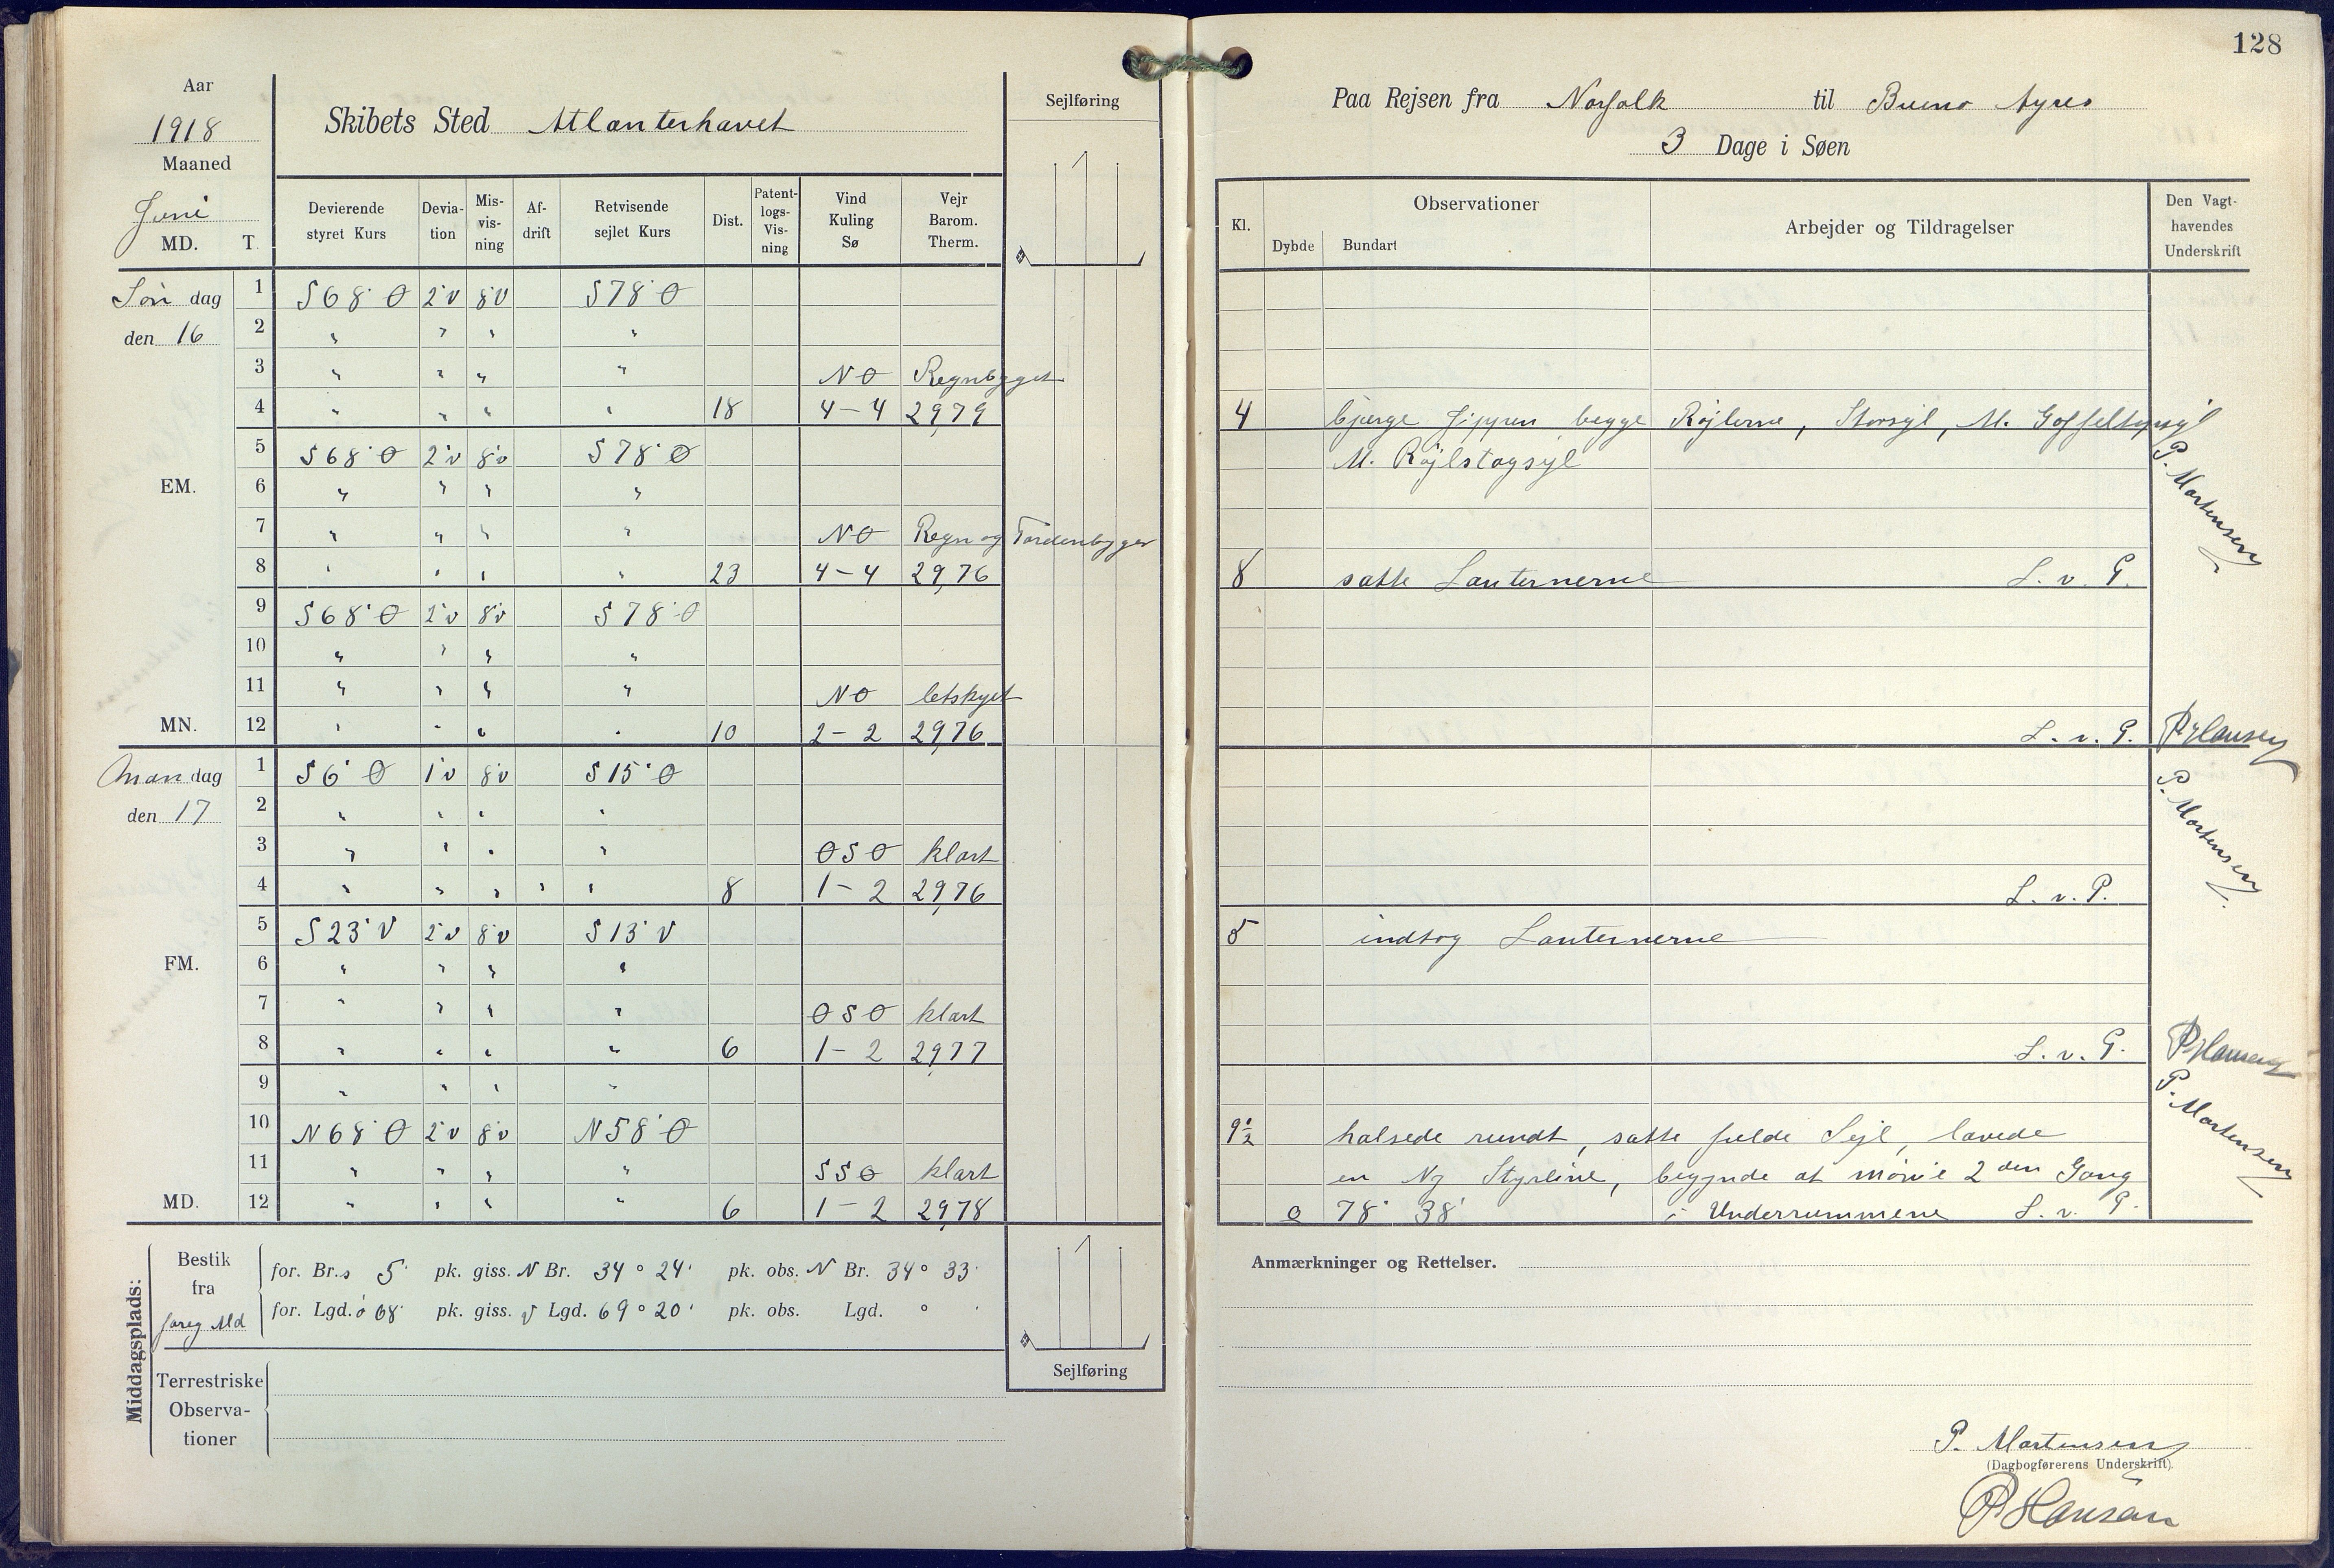 128
Aar
1918
Maaned
Juni
MD. T.
Skibets Sted Atlanterhavet
Sejlføring
Paa Rejsen fra Norfolk til Bueno Ayres
3 Dage i Søen
Devierende styret Kurs
Deviation
Misvisning
Afdrift
Retvisende sejlet Kurs
Dist.
Patentlogs-Visning
Vind Kuling Sø
Vejr Barom. Therm.
Kl.
Observationer
Dybde Bundart
Arbejder og Tildragelser
Den Vagthavendes Underskrift
Søn dag 1 S 68° Ø 2°V 8°V S 78° Ø
den 16 2 " " " "
3 " " " " NO Regnbyget
4 " " " " 18 4-4 29,79
4 bjerge Jippen begge Röjlerne, Storsejl, M. Gaffeltopsejl
5 S 68° Ø 2°V 8°V S 78° Ø
M. Röjlstagsejl
P. Mortensen
EM. 6 " " " "
7 " " " " NO Regn og Tordenbyger
8 " " " " 23 4-4 29,76
8 satte Lanternerne L. v. P.
9 S 68° Ø 2°V 8°V S 78° Ø
10 " " " "
11 " " " " NO letskyet
MN. 12 " " " " 10 2-2 29,76
L. v. P. P Hansen
Man dag 1 S 6° Ø 1°V 8°V S 15° Ø
den 17 2 " " " "
P. Mortensen
3 " " " " OSO klart
4 " " " " " 8 1-2 29,76
L. v. P.
5 S 23° V 2°V 8°V S 13° V
5 indtog Lanternerne
FM. 6 " " " "
7 " " " " OSO klart
8 " " " " 6 1-2 29,77
L. v. P. P Hansen
9 " " " "
P. Mortensen
10 N 68° Ø 2°V 8°V N 58° Ø
9½ halsede rundt, satte fulde Sejl, lavede
11 " " " " SSO klart
en Ny Styrline, begynde at mönie 2den Gang
MD. 12 " " " " 6 1-2 29,78
o 78° 38' i Underrummene L. v. P.
Middagsplads:
Bestik fra foreg Md
for. Br. s 5' pk. giss. N Br. 34° 24' pk. obs. N Br. 34° 33'
for. Lgd. ö 68' pk. giss. V Lgd. 69° 20' pk. obs. Lgd. ° '
Terrestriske Observationer
Sejlføring
Anmærkninger og Rettelser.
P. Mortensen
(Dagbogførerens Underskrift).
P Hansen